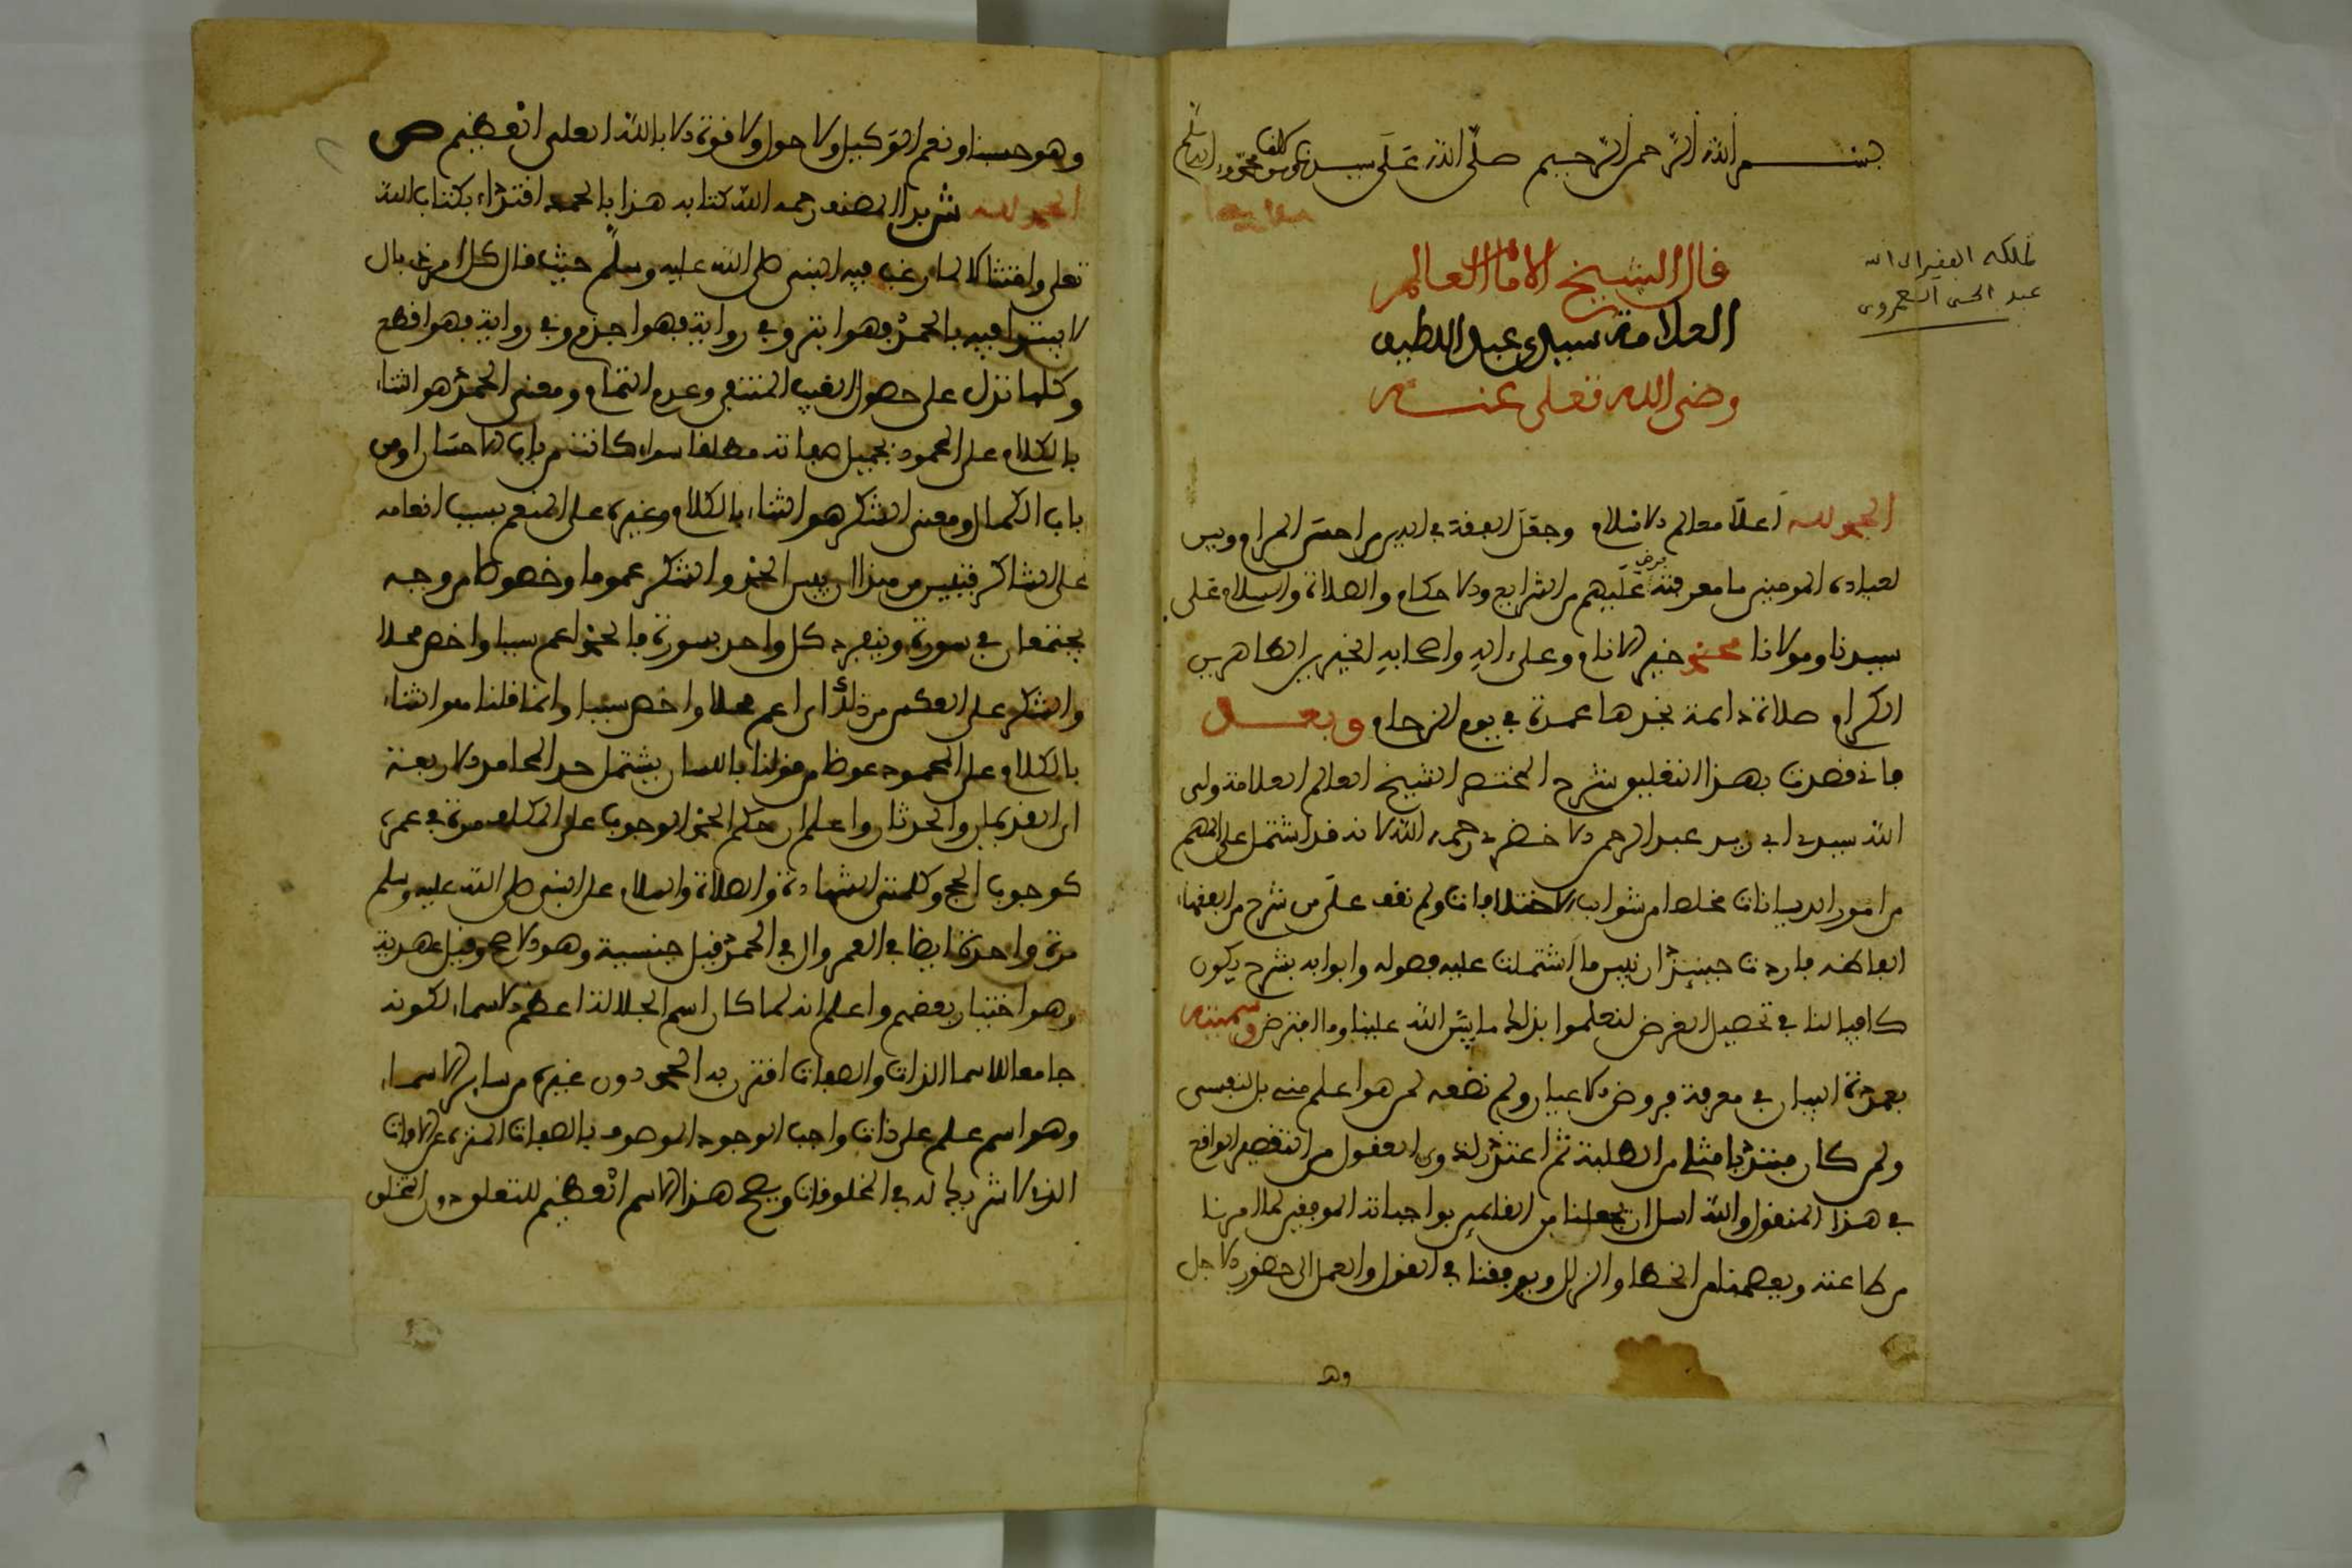 بسم الله الرحمن الرحيم صلى الله على سيدنا ومولانا محمد وءاله
قال الشيخ الامام العالم
العلامة سيدي عبد اللطيف
رضى الله تعلى عنه
تملكه الفقير الى الله
عبد الحسن
الحمد لله اعلا معالم الاسلام وجعل الفقه في الدين من احسن المرام وبين
لعباده المومنين ما معرفته فرض عليهم من الشرايع والاحكام والصلاة والسلام على
سيدنا ومولانا محمد خير الانام وعلى اله واصحابه الخيرين الطاهرين
الكرام صلاة دايمة نجدها عمدة في يوم الزحام وبعد
فاني قصدت بهذا التعليق شرح المختصر الشيخ العالم العلامة ولى
الله سيدي ابي زيد عبد الرحمن الاخضري رحمه الله لانه قد اشتمل على المهم
من امور الديانات مخلصا من شوايب الاختلافات ولم نقف على من شرح من الفقهاء
الفاظه فاردت حينئذ ان نبين ما اشتملت عليه فصوله وابوابه بشرح يكون
كافيا لنا في تحصيل الغرض لنعلموا بذلك ما يسر الله علينا وما افترض وسميته
بعمدة البيان في معرفة فروض الاعيان ولم نضعه لمن هو اعلم منى بل لنفسى
ولمن كان مبتدئا مثلى من الطلبة ثم اعتذر لذوى العقول من التقصير الواقع
في هذا المنقول والله اسال ان يجعلنا من القايمين بواجباته الموفقين لما امرنا
من طاعته ويعصمنا من الخطا والزلل ويوفقنا في القول والعمل الى حضور الاجل
وهو
وهو حسبنا ونعم الوكيل ولا حول ولا قوة الا بالله العلى العظيم ص
الحمد لله ش بدا المصنف رحمه الله كتابه هذا بالحمد اقتداء بكتاب الله
تعلى وامتثالا لما رغب فيه النبى صلى الله عليه وسلم حيث قال كل امر ذى بال
لا يبتدا فيه بالحمد فهو ابتر وفي رواية فهو اجذم وفي رواية فهو اقطع
وكلها تدل على حصول العيب المنتفى وعدم التمام ومعنى الحمد هو الثناء
بالكلام على المحمود بجميل صفاته مطلقا سواء كانت من باب الاحسان او من
باب الكمال ومعنى الشكر هو الثناء بالكلام وغيره على المنعم بسبب انعامه
على الشاكر فتبين من هذا ان بين الحمد والشكر عموما وخصوصا من وجه
يجتمعان في صورة وينفرد كل واحد بصورة فالحمد اعم سببا واخص محلا
والشكر على العكس من ذلك اى اعم محلا واخص سببا وانما قلنا هو الثناء
بالكلام على المحمود عوضا من قولنا باللسان ليشتمل حد المحامد الاربعة
اى القديمان والحدثان واعلم ان حكم الحمد الوجوب على المكلف مرة في عمره
كوجوب الحج وكلمتى الشهادة والصلاة والسلام على النبى صلى الله عليه وسلم
مرة واحدة ايضا في العمر وال في الحمد قيل جنسية وهو الاصح وقيل عهدية
وهو اختيار بعضهم واعلم انه لما كان اسم الجلالة اعظم الاسماء لكونه
جامعا للاسما الذات والصفات اقترن به الحمد دون غيره من ساير الاسماء
وهو اسم علم على ذات واجب الوجود الموصوف بالصفات المنزه عن الافات
الذى لا شريك له في المخلوقات ويصح هذا الاسم العظيم للتعلق دون التخلق